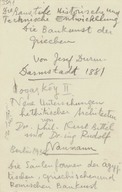 Die Baustile Historische und
Technische Entwicklung
Die Baukunst der
Griechen
von Josef Durm
Darmstadt 1881
Bogazköy II
Neue Untersuchungen
hethitischer Architektur
Dr. phil. Kurt Bittel
und Dr. Ing. Rudolf
Naumann
Die Säulenformen der ägyp-
tischen, griechischen und
römischen Baukunst